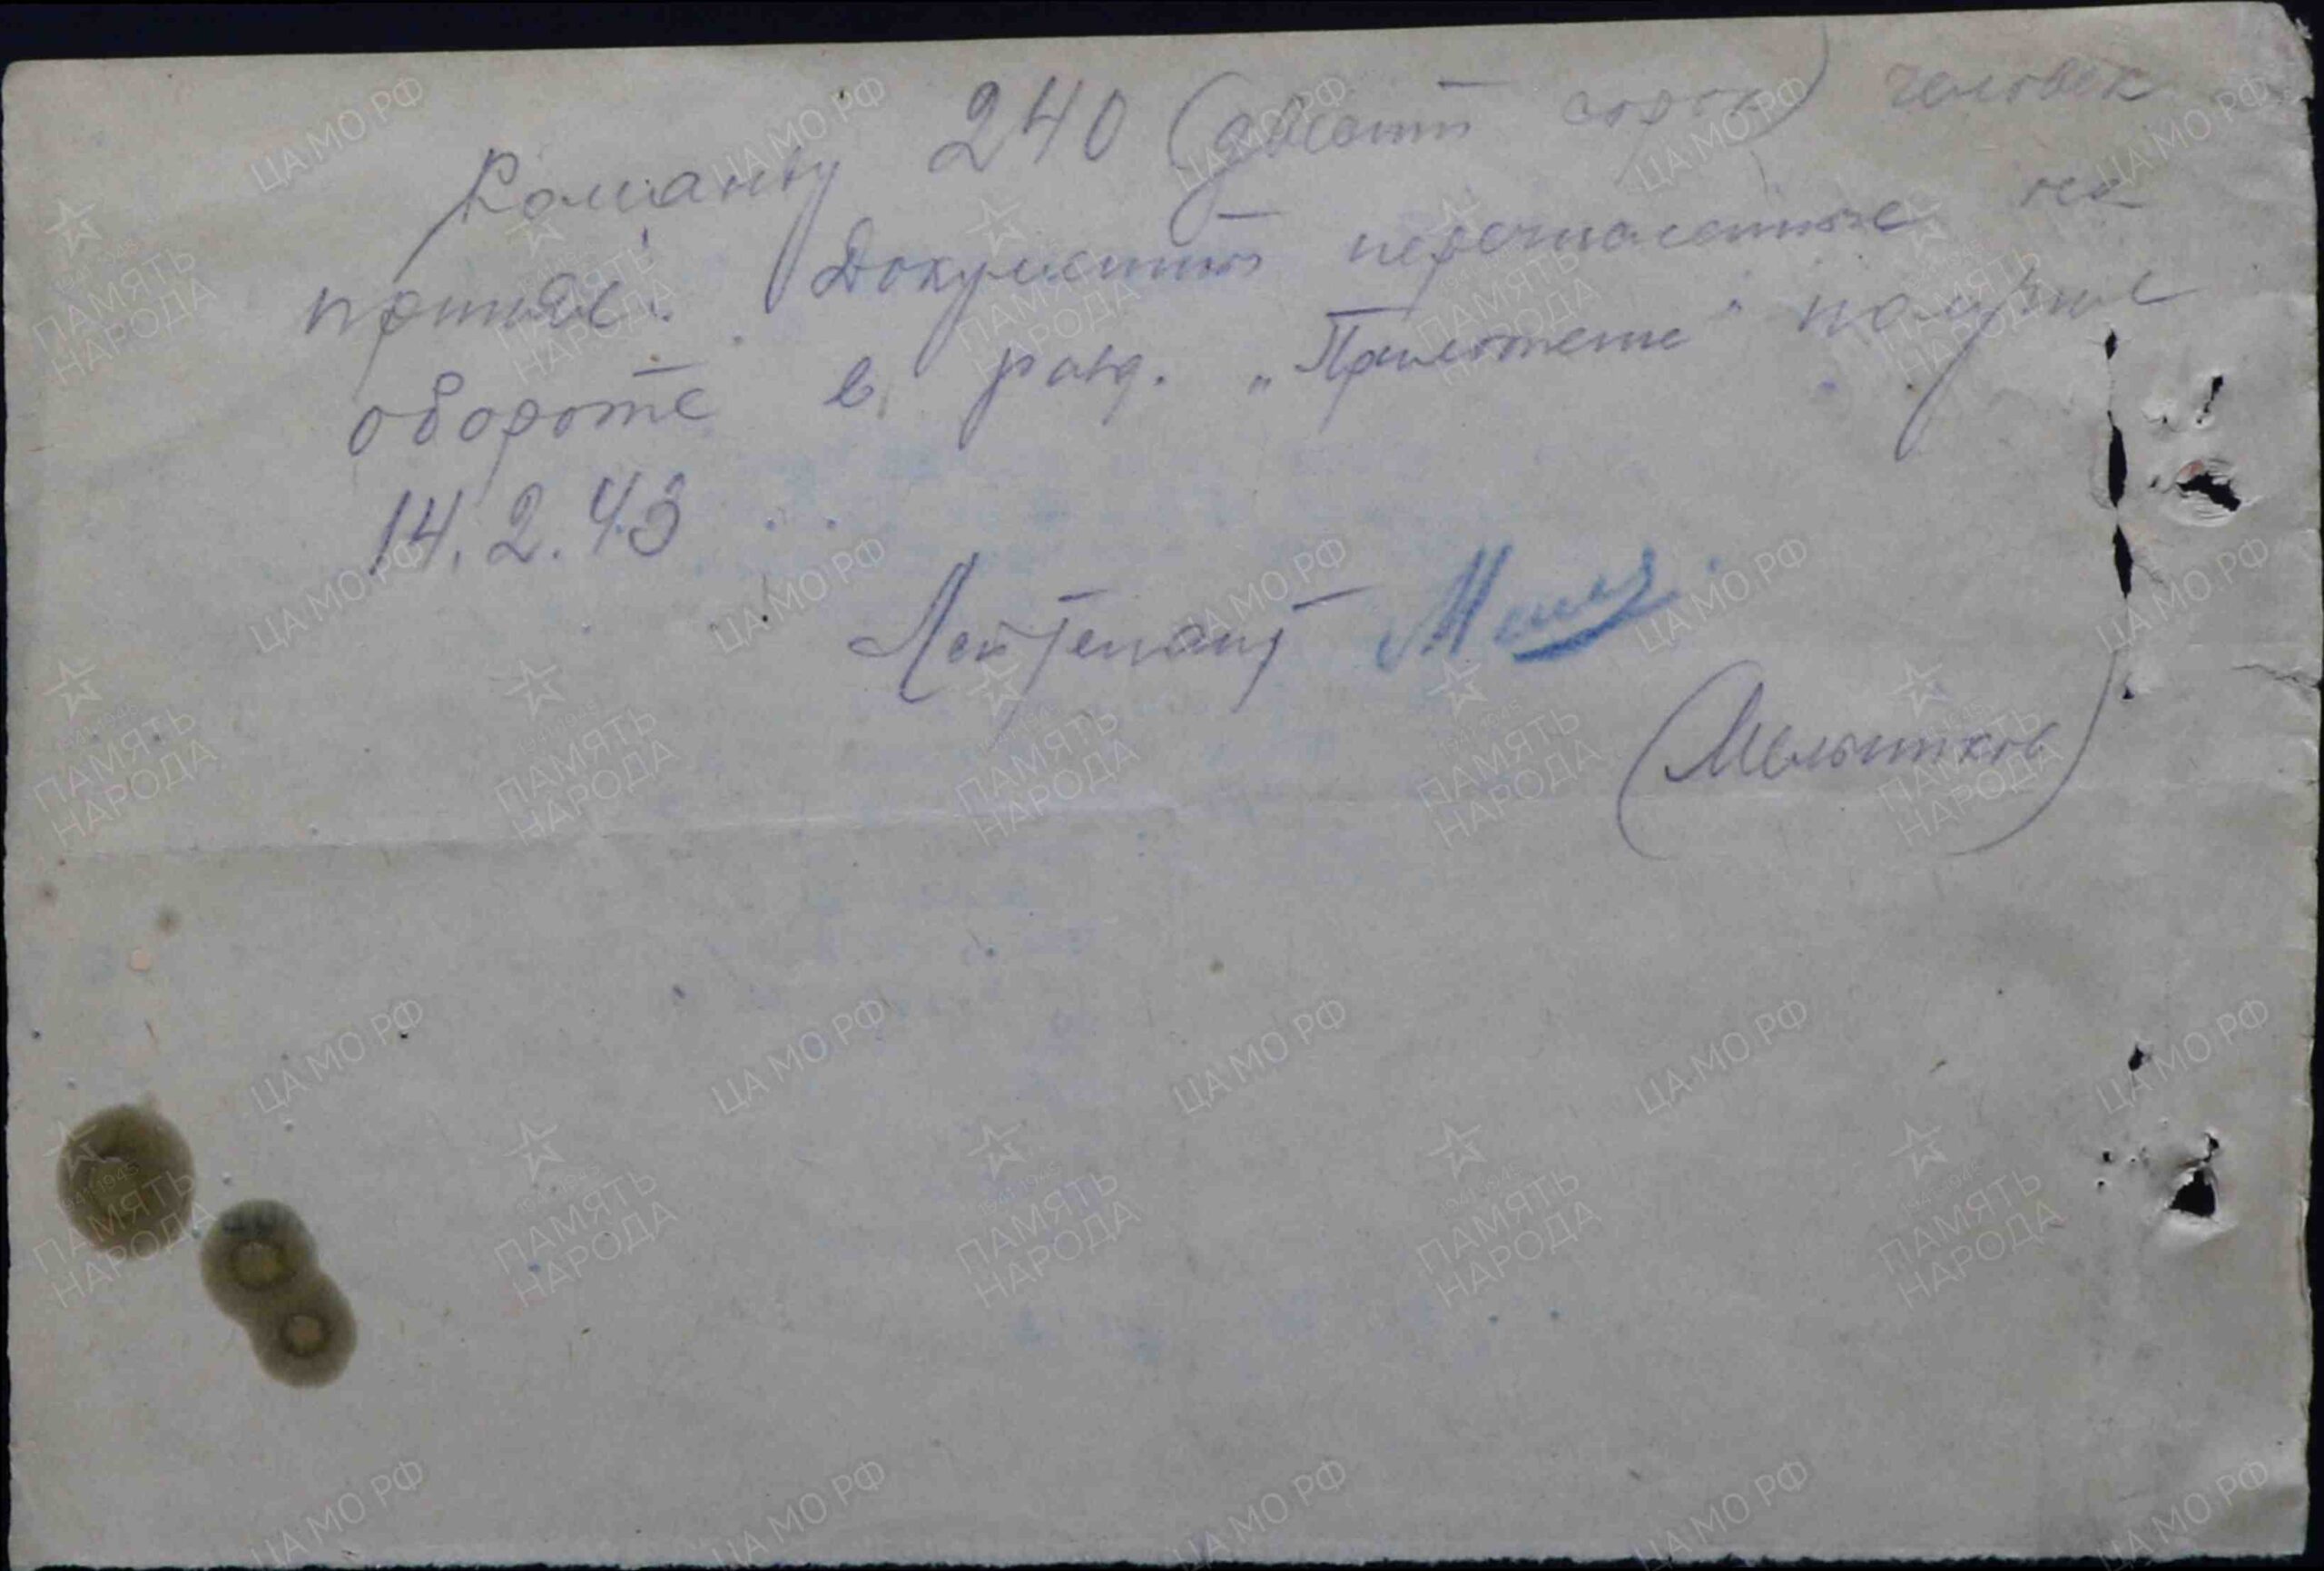 Команду 240 (двести сорок) человек
принял. Документы перечисленные на
обороте в разд. „Приложение“ получил
14.2.43
Лейтенант
(Мельников)
ЦА МО РФ
1941-1945
ПАМЯТЬ
НАРОДА